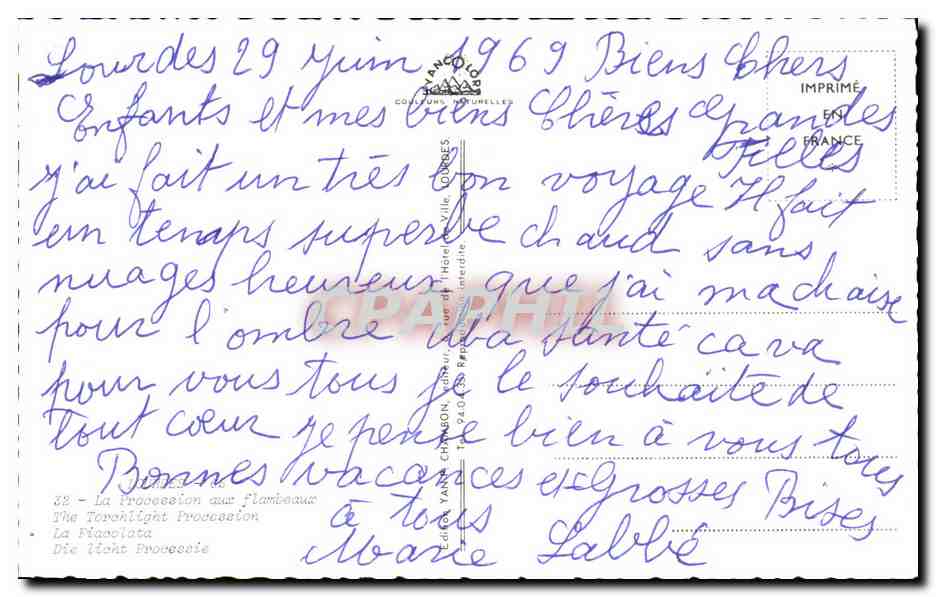 Lourdes 29 Juin 1969 Biens Chers
Enfants et mes biens Chères grandes
Filles
J'ai fait un très bon voyage Il fait
un temps superbe chaud sans
nuages heureux que j'ai ma chaise
pour l'ombre Ma santé ca va
pour vous tous je le souhaite de
tout cœur je pense bien à vous tous
Bonnes vacances et Grosses Bises
à tous
Marie Labbé
YANCOLOR
COULEURS NATURELLES
IMPRIMÉ
EN
FRANCE
32 - La Procession aux flambeaux
The Torchlight Procession
La Fiacolata
Die licht Processie
Edition YAN-CHAMBON, editeur, rue de l'Hôtel de Ville, LOURDES
Tel. 94-04-39 Reproduction interdite.
CPAPHIL